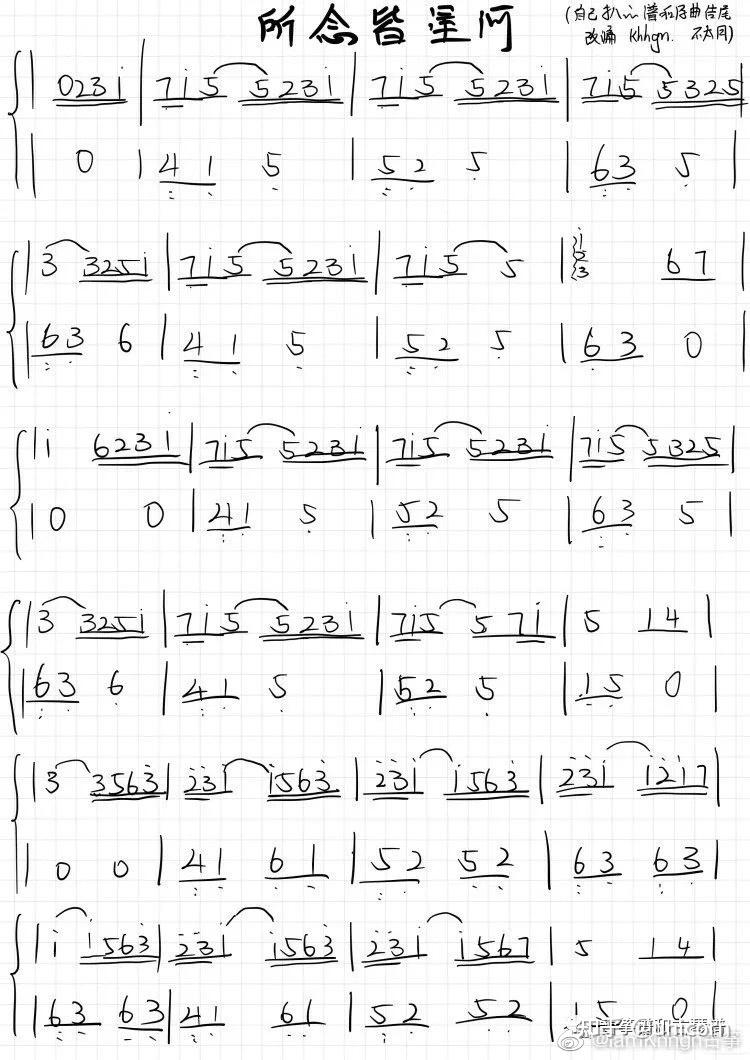 所念皆星河
(自己扒的谱和原曲结尾
改编 Khhgn. 不太同)
| 0231 | 715 5231 | 715 5231 | 715 5325 |
| 0 | 41 5 | 52 5 | 63 5 |
| 3 3251 | 715 5231 | 715 5 | 1 5 3 67 |
| 63 6 | 41 5 | 52 5 | 63 0 |
| 1 6231 | 715 5231 | 715 5231 | 715 5325 |
| 0 0 | 41 5 | 52 5 | 63 5 |
| 3 3251 | 715 5231 | 715 5 71 | 5 14 |
| 63 6 | 41 5 | 52 5 | 15 0 |
| 3 3563 | 231 1563 | 231 1563 | 231 1217 |
| 0 0 | 41 61 | 52 52 | 63 63 |
| 1 1563 | 231 1563 | 231 1567 | 5 14 |
| 63 63 | 41 61 | 52 52 | 15 0 |